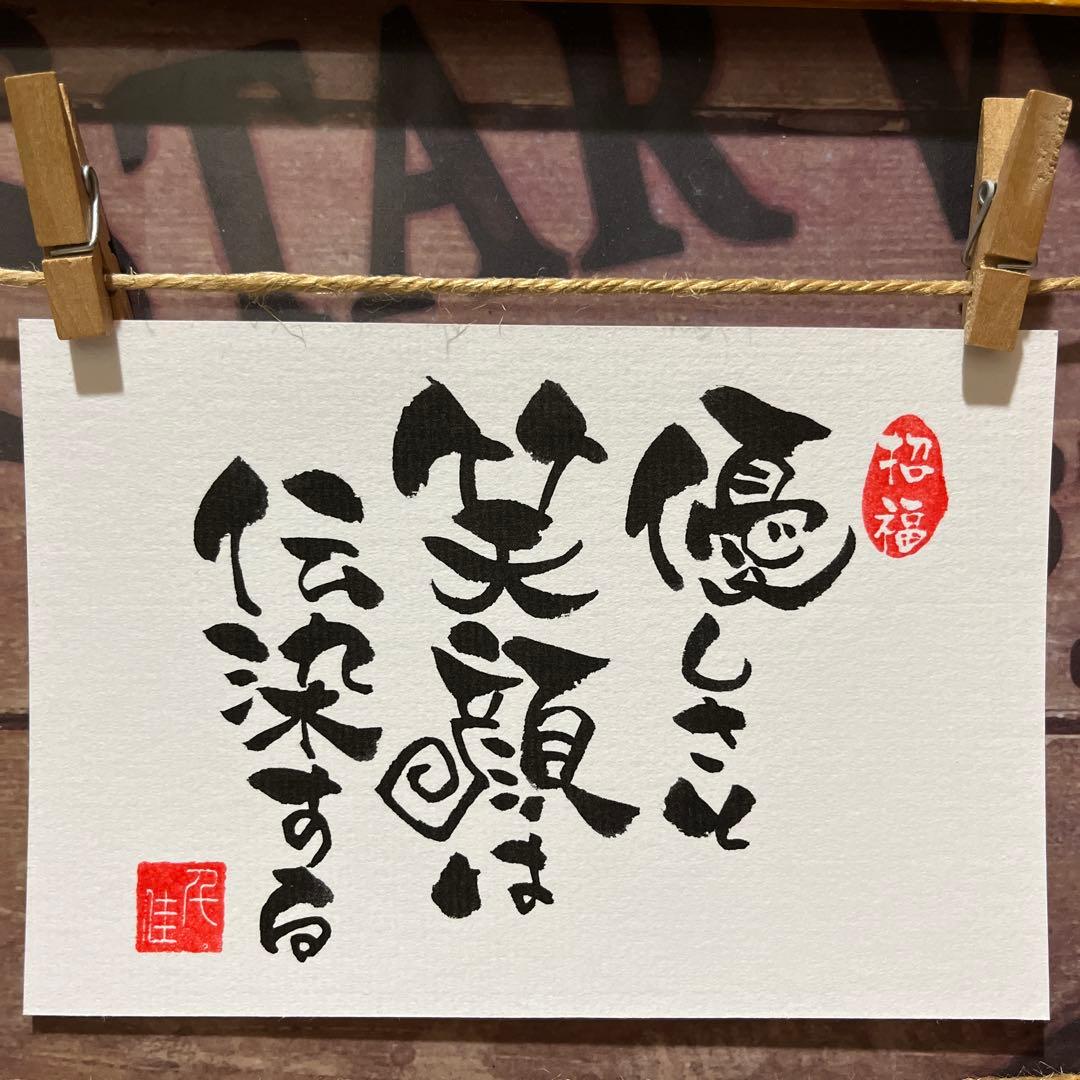 STAR W
招福
優しさと
笑顔は
伝染する